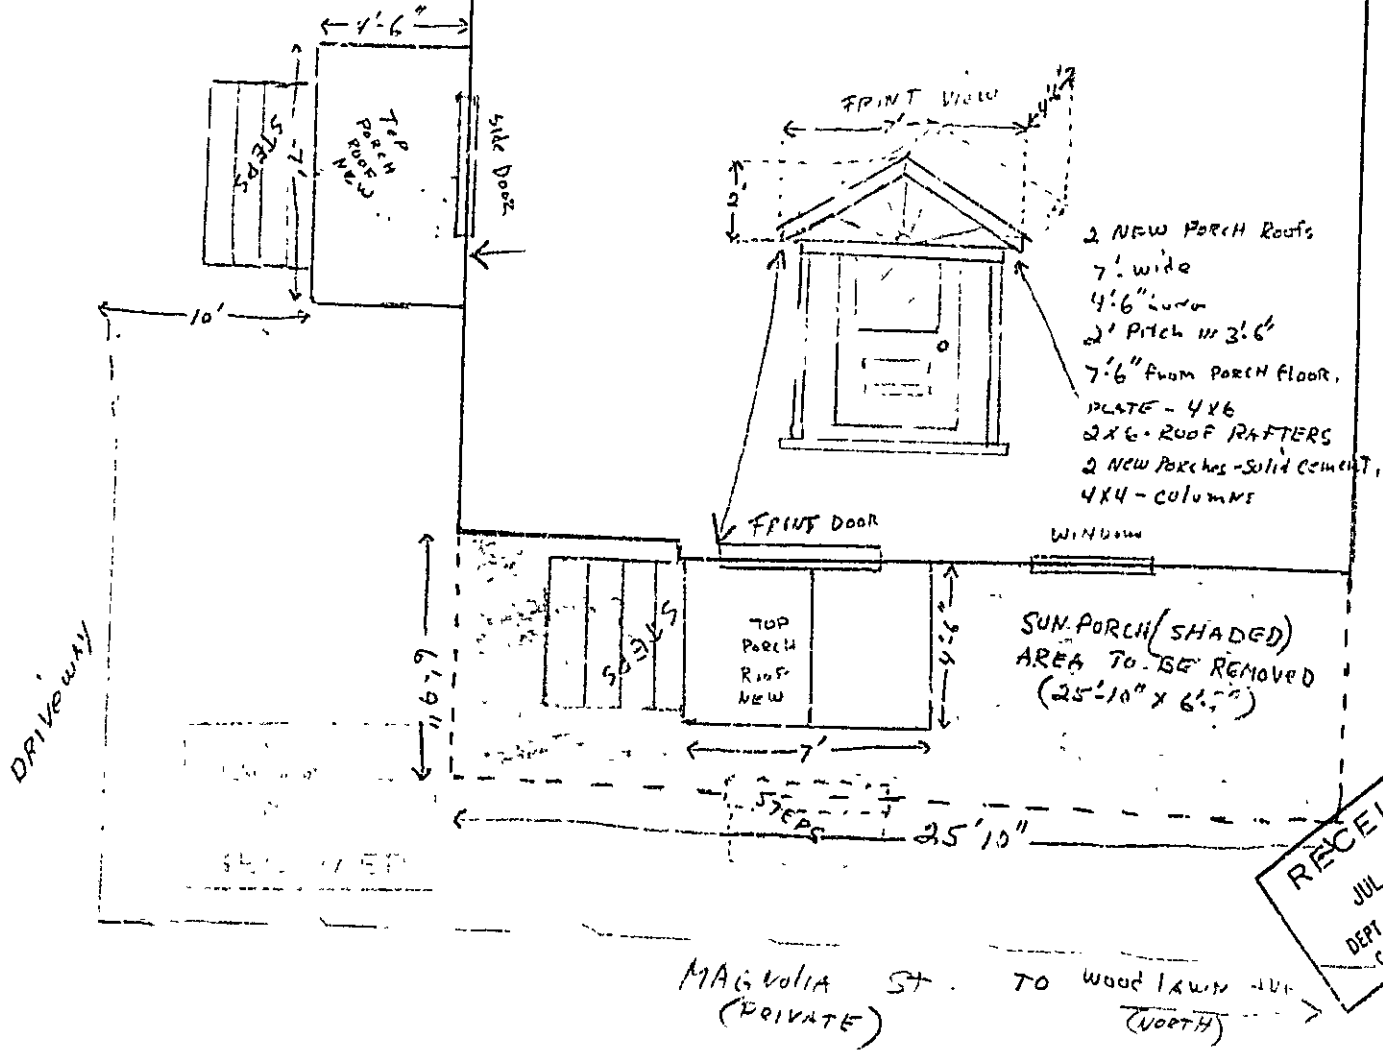 4'-6"
STEPS
7'
TOP
PORCH
ROOF
NEW
Side DOOR
10'
FRINT VIEW
7'
4'6"
2'
2 NEW PORCH ROOFS
7' wide
4'-6" LONG
2' Pitch in 3'-6"
7'-6" From PORCH FLOOR,
PLATE - 4X6
2X6 - ROOF RAFTERS
2 NEW Porches - Solid Cement,
4X4 - COLUMNS
FRINT DOOR
WINDOW
STEPS
TOP
PORCH
ROOF
NEW
4'-6"
7'
6'-9"
SUN PORCH (SHADED)
AREA TO BE REMOVED
(25'-10" X 6'
STEPS
25'10"
DRIVEWAY
MAGNOLIA St. TO Woodlawn
(PRIVATE)
(NORTH)
JUL
DEPT